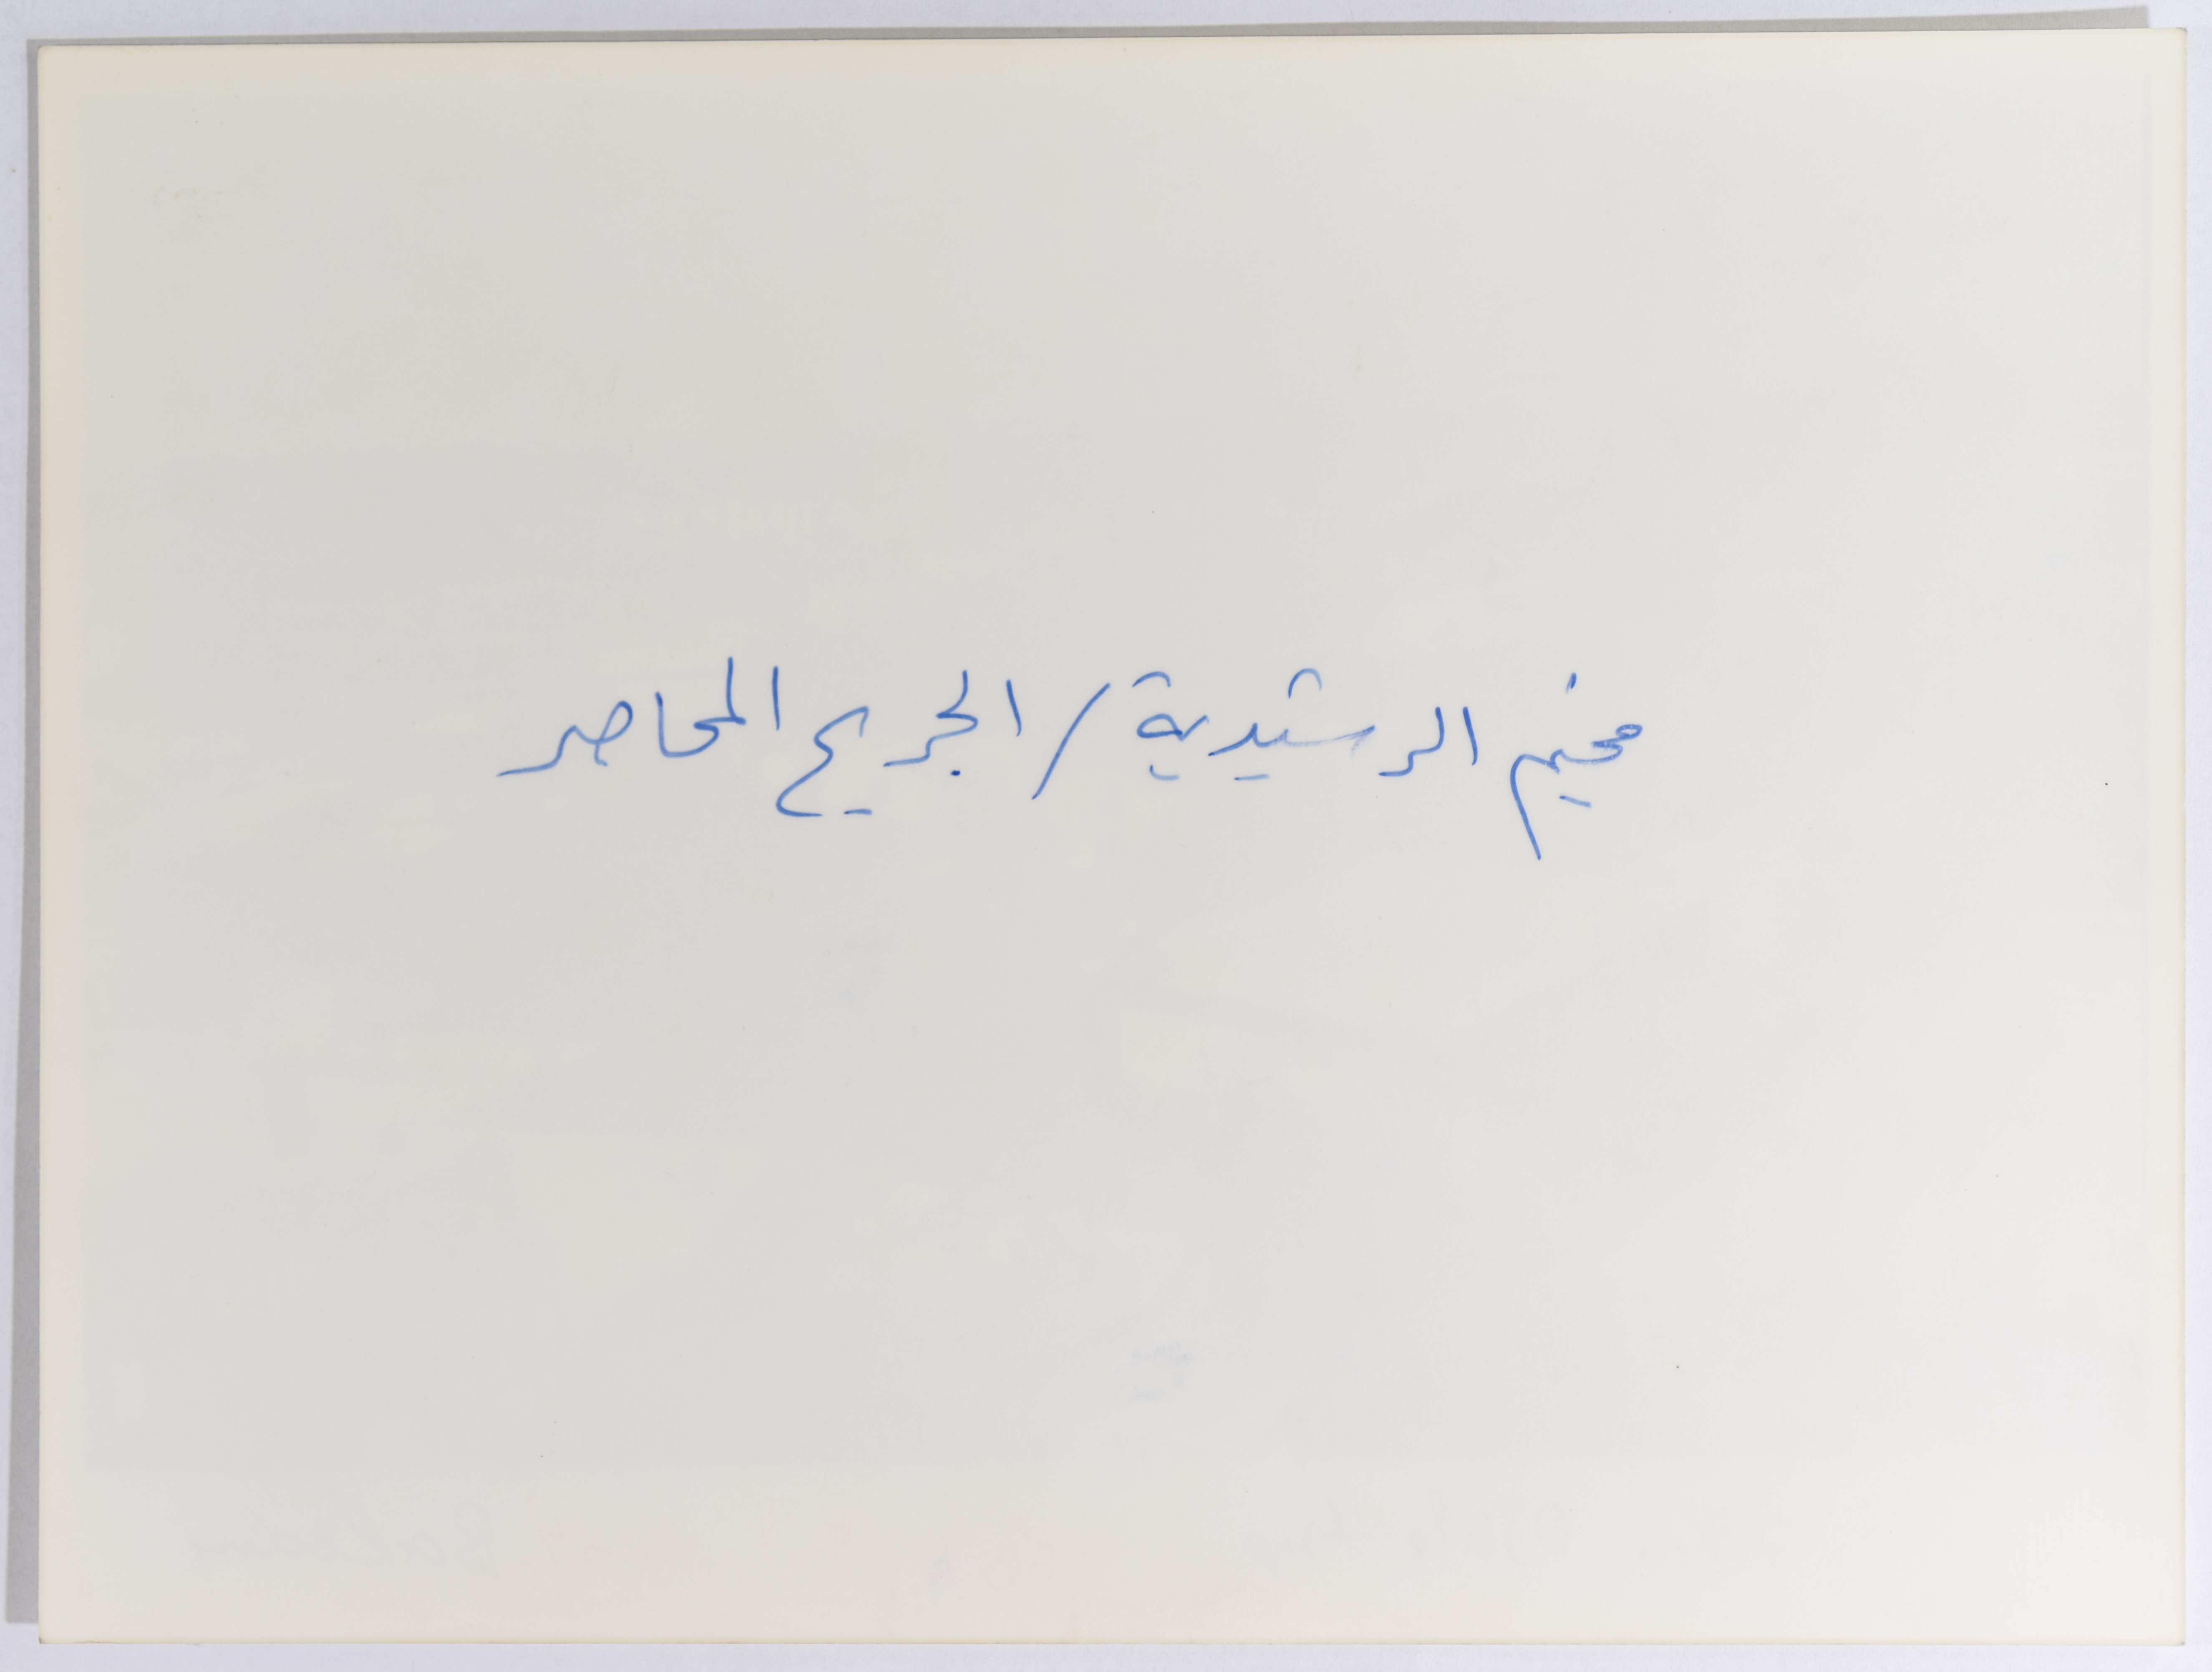 مخيم الرشيدية / الجريح المحاصر